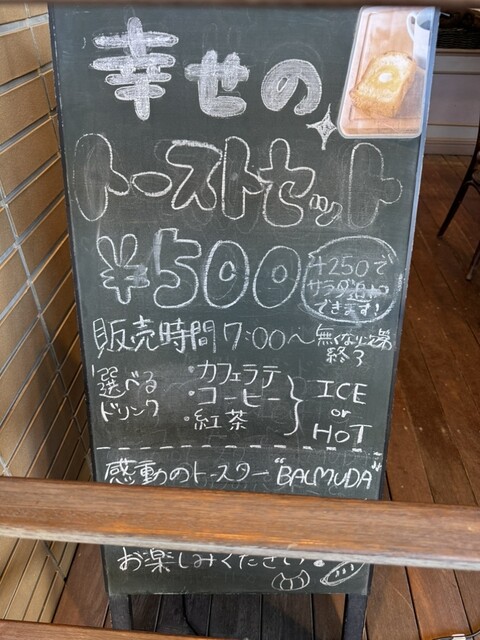 幸せの
トーストセット
¥500
+250で
サラダ追加
できます!
販売時間 7:00〜 無くなり次第
終了
選べる
ドリンク
・カフェラテ
・コーヒー
・紅茶
ICE
or
HOT
感動のトースター "BALMUDA"
お楽しみください